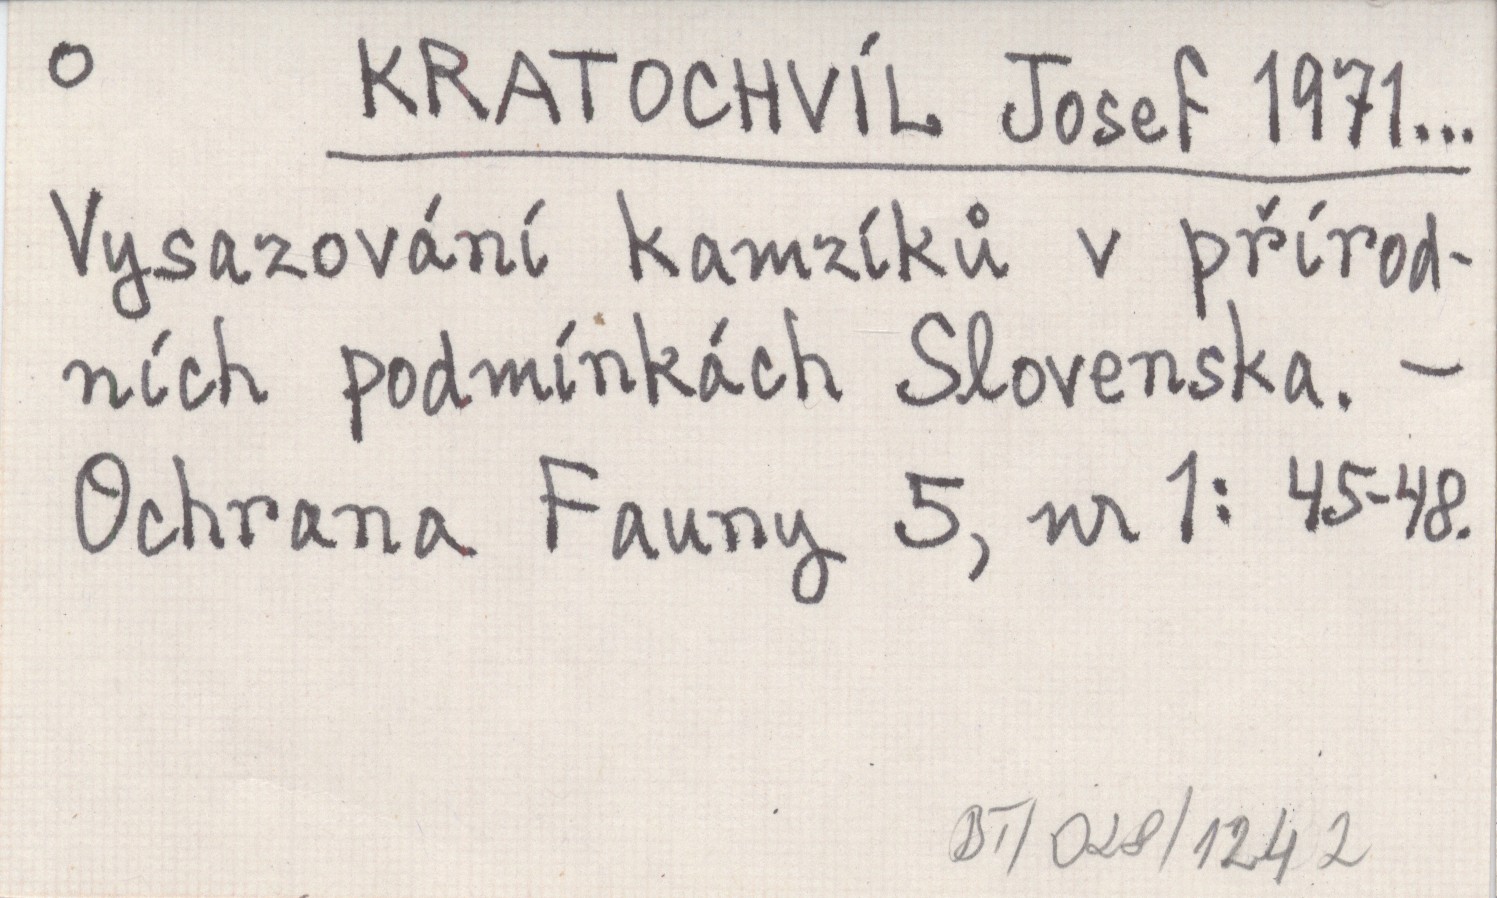 o KRATOCHVÍL Josef 1971...
Vysazování kamzíků v přírod-
ních podmínkách Slovenska. –
Ochrana Fauny 5, nr 1: 45-48.
BT/028/1242